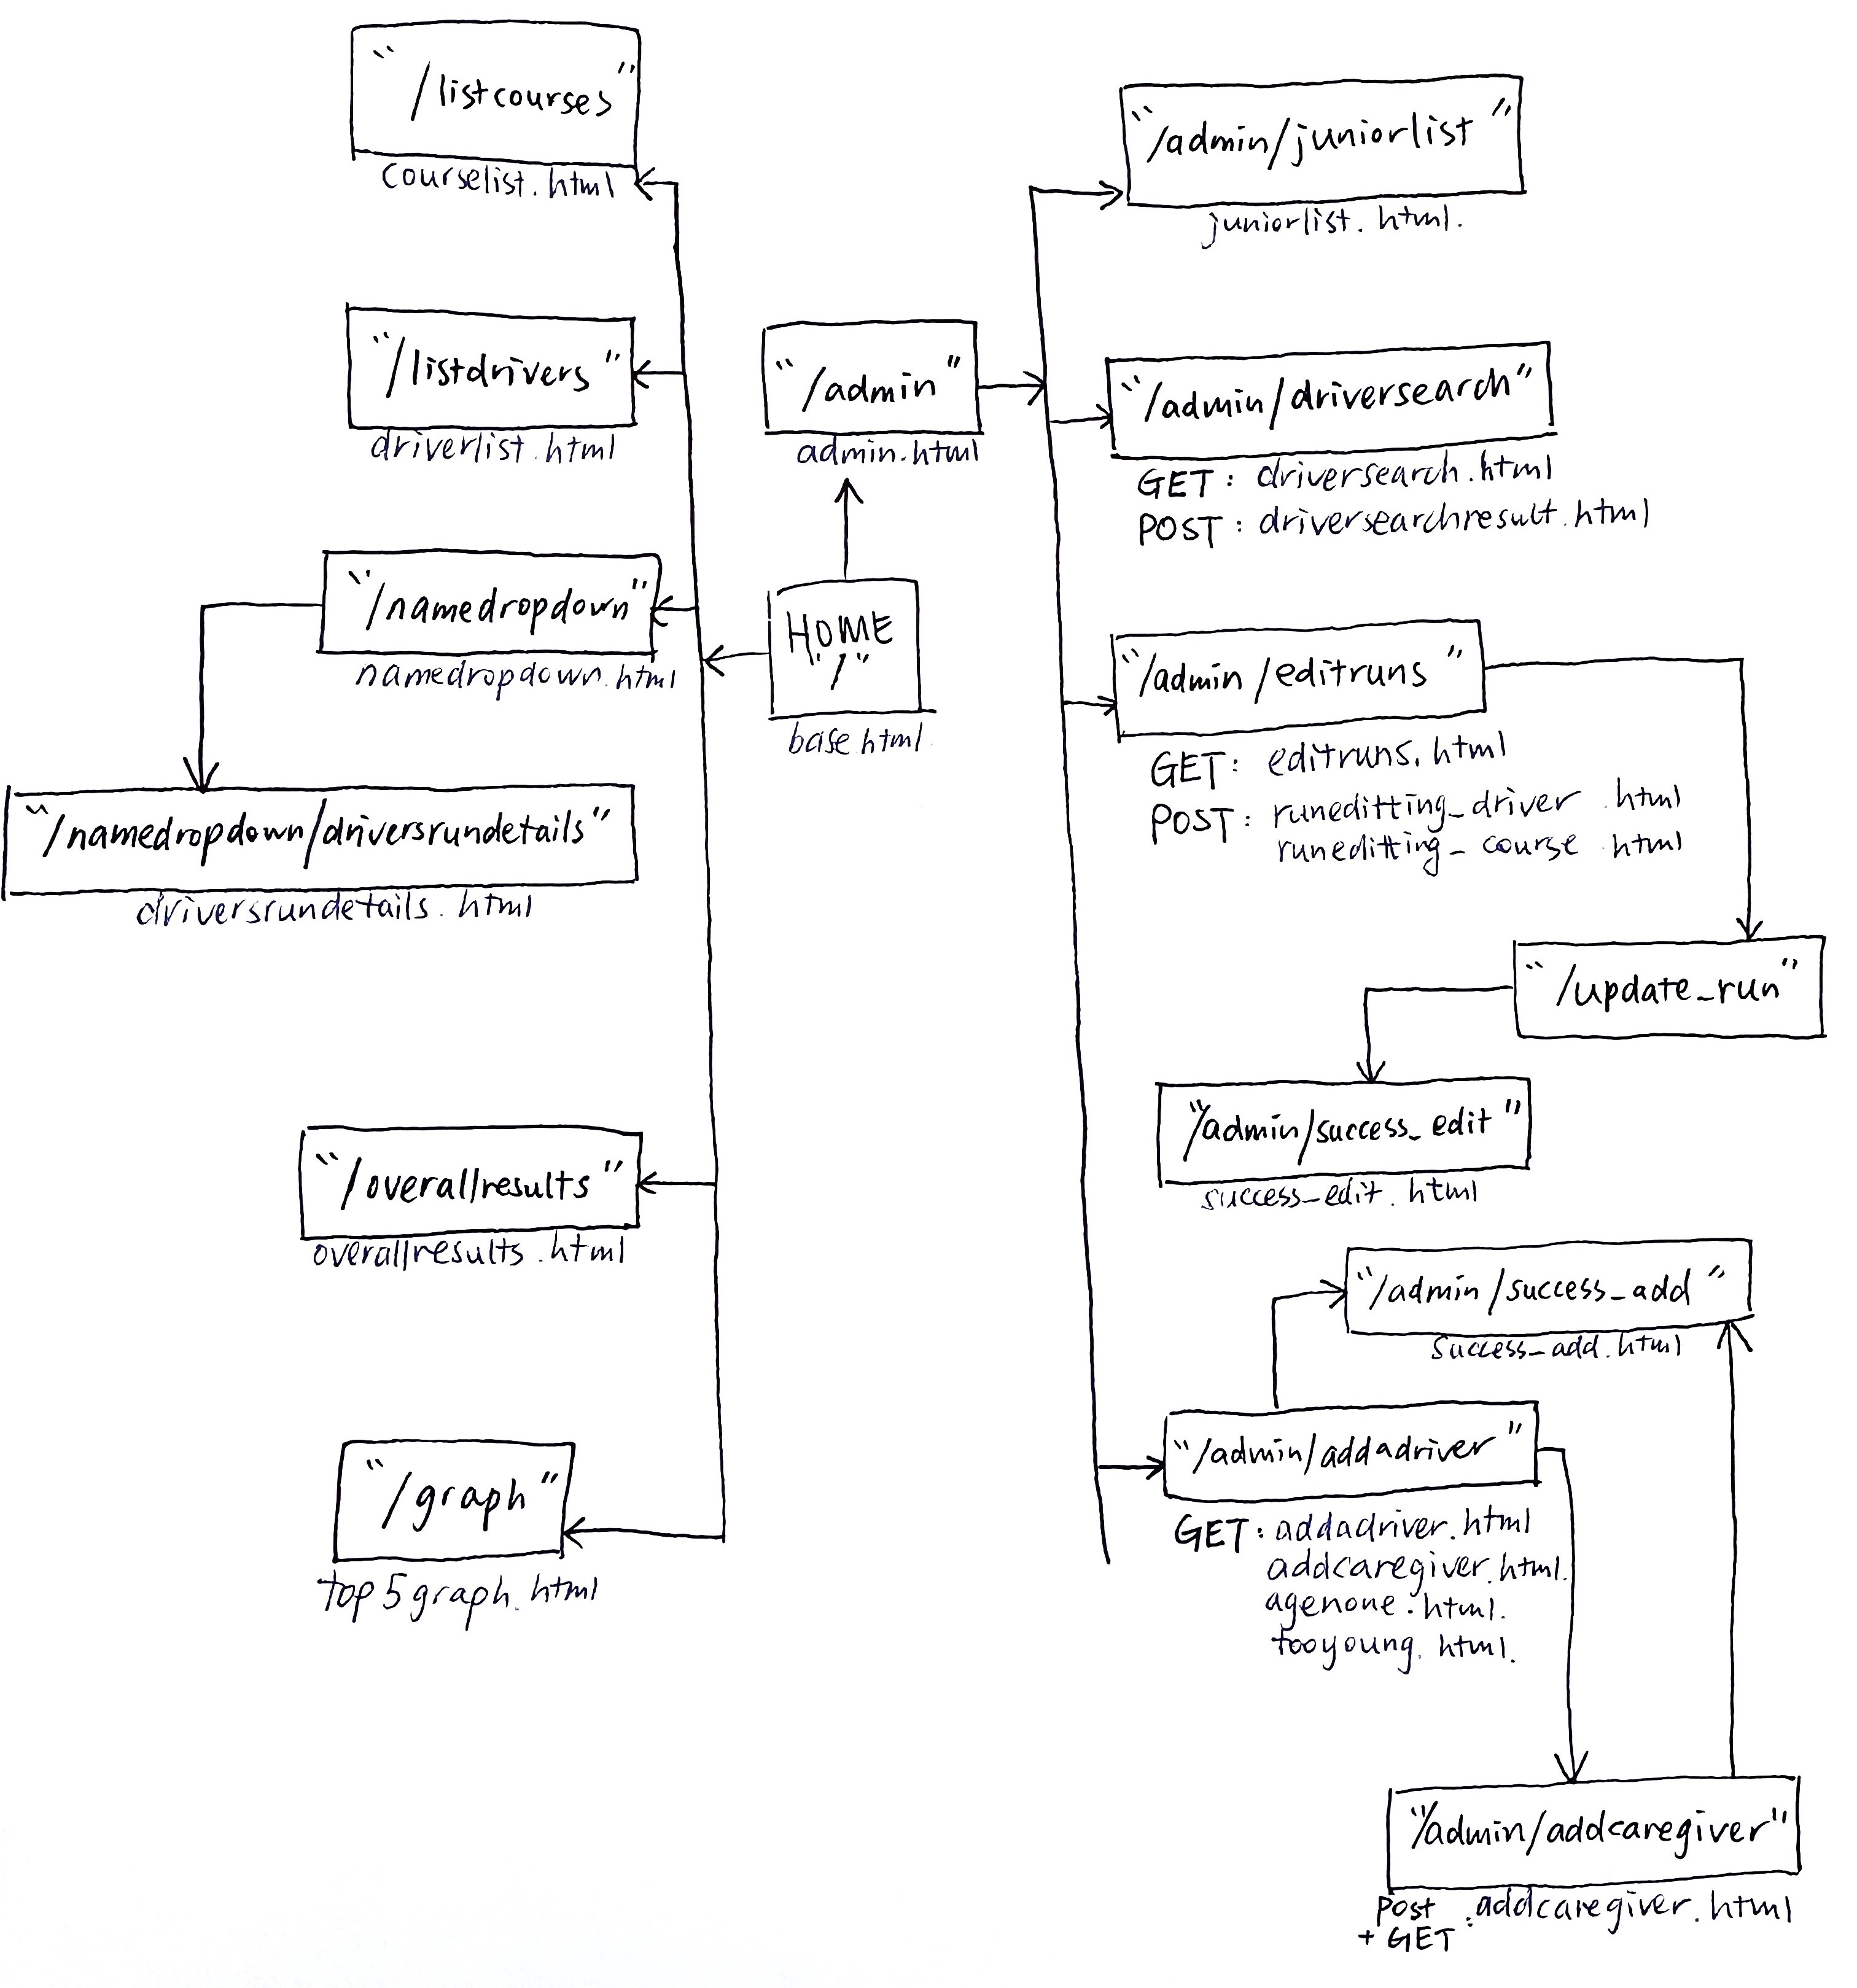 "/listcourses"
courselist.html
"/listdrivers"
driverlist.html
"/namedropdown"
namedropdown.html
"/namedropdown/driversrundetails"
driversrundetails.html
"/overallresults"
overallresults.html
"/graph"
top5graph.html
"/admin"
admin.html
HOME
"/"
base html
"/admin/juniorlist"
juniorlist.html.
"/admin/driversearch"
GET: driversearch.html
POST: driversearchresult.html
"/admin/editruns"
GET: editruns.html
POST: runeditting_driver.html
runeditting_course.html
"/update_run"
"/admin/success_edit"
success_edit.html
"/admin/success_add"
success_add.html
"/admin/addadriver"
GET: addadriver.html
addcaregiver.html.
agenone.html.
tooyoung.html.
"/admin/addcaregiver"
Post : addcaregiver.html
+ GET